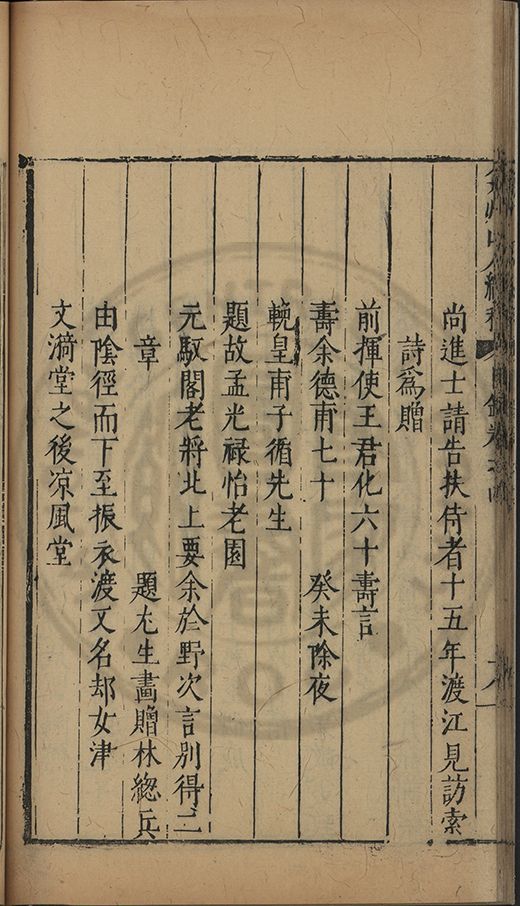 弇州山人續稿 目錄卷之四
尚進士請告扶侍者十五年渡江見訪索
詩爲贈
前揮使王君化六十壽言
壽余德甫七十　癸未除夜
輓皇甫子循先生
題故孟光禄怡老園
元馭閣老將北上要余於野次言別得二
章　題尤生畫贈林緫兵
由陰徑而下至振衣渡又名却女津
文漪堂之後凉風堂